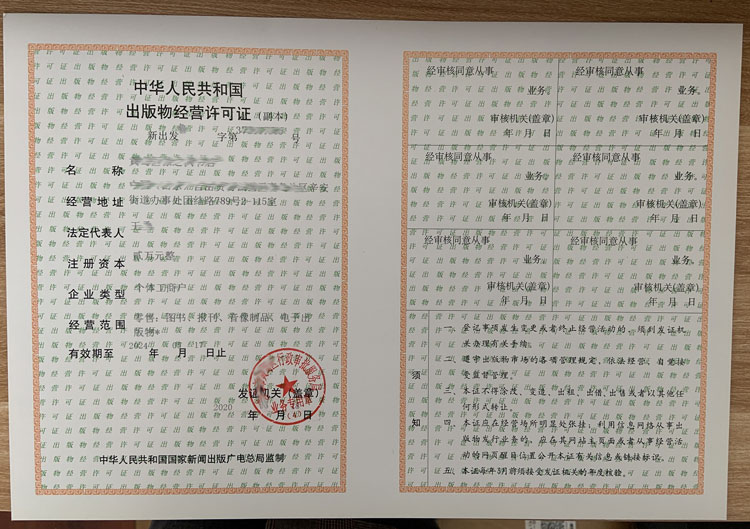 中华人民共和国
出版物经营许可证（副本）
新出发 字第 号
名 称
辛安
经营地址 街道办事处团结路789号2-115室
法定代表人 王
注册资本 贰万元整
企业类型 个体工商户
经营范围 零售：图书、报刊、音像制品、电子出
版物*
有效期至 2024 年 月 17 日止
发证机关（盖章）
2020 年 月 日
行政审批服务局
业务专用章
(4)
中华人民共和国国家新闻出版广电总局监制
经审核同意从事
业务。
审核机关(盖章)
年 月 日
经审核同意从事
业务。
审核机关(盖章)
年 月 日
经审核同意从事
业务。
审核机关(盖章)
年 月 日
经审核同意从事
业务。
审核机关(盖章)
年 月 日
经审核同意从事
业务。
审核机关(盖章)
年 月 日
经审核同意从事
业务。
审核机关(盖章)
年 月 日
须知
一、登记事项发生变更或者终止经营活动的，须到发证机
关办理有关手续。
二、遵守出版物市场的各项管理规定，依法经营，自觉接
受监督管理。
三、本证不得涂改、变造、出租、出借、出售或以其他任
何形式转让。
四、本证应在经营场所明显处张挂。利用信息网络从事出
版物发行业务的，应在其网站主页面或者从事经营活
动的网页醒目位置公开本证有关信息或链接标识。
五、本证每年3月前须接受发证机关的年度核验。